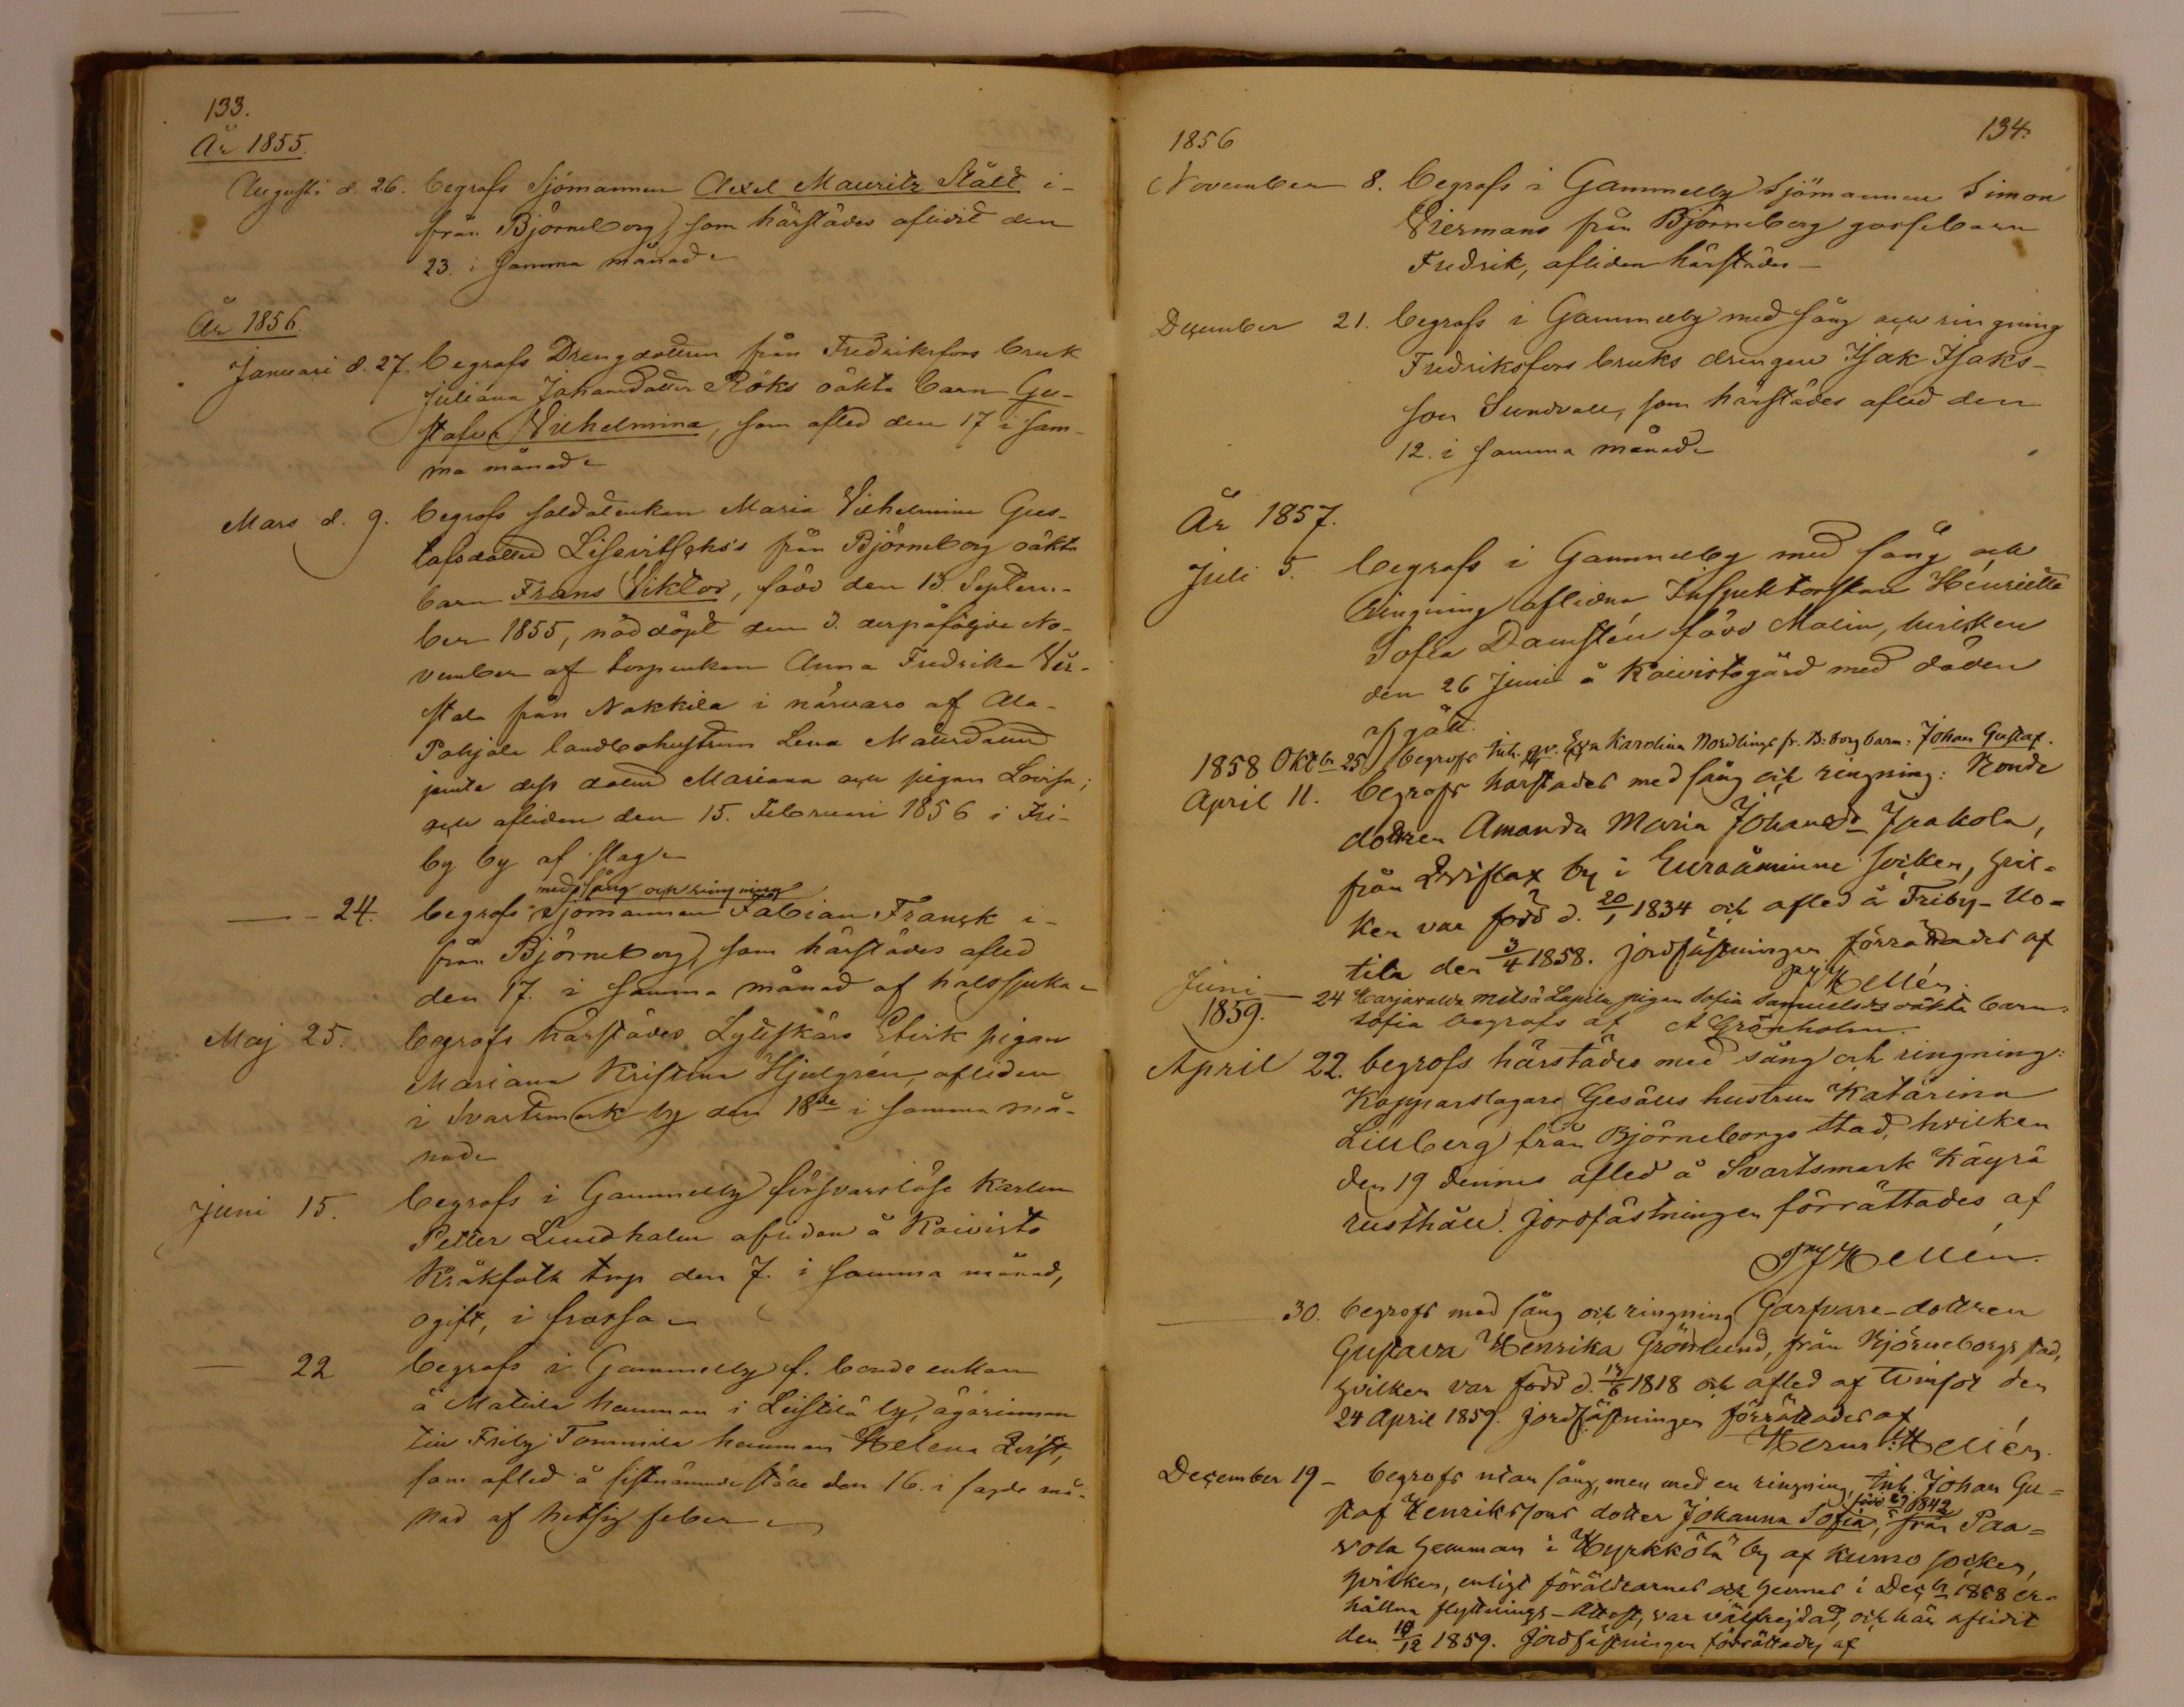 133.
År 1855.
Augusti d. 26. begrofs Sjömannen Axel Mauritz Ståhl i-
från Björneborg, som härstädes aflidit den
23. i samma månad
År 1856.
Januari d. 27. begrofs Drengdottren från Fredriksfors bruk
Juliana Johansdotter Röks oäkta barn Gu-
stafva Vilhelmina, som afled den 17 i sam-
ma månad
Mars d. 9. begrofs soldatenkan Maria Vilhelmina Gus-
tafsdotter från Björneborg oäkta
barn Frans Viktor, född den 13. Septem-
ber 1855, nöddöpt den 3. derpåföljde No-
vember af torpenkan Anna Fredrika
från Nakkila i närvaro af Ala-
Pohjala landbohustrun Lena Matsdotter
jemte dess dotter Mariana och pigan Lovisa;
och afliden den 15. Februari 1856 i Fri-
by by af slag
med sång och ringning
— 24. begrofs sjömannen Fabian Franck i-
från Björneborg, som härstädes afled
den 17. i samma månad af halssjuka
Maj 25. begrofs härstädes Lyttskärs Ebrik pigan
Mariana Kristina Hjulgrén, afliden
i Svartsmark by den 18de i samma må-
nad
Juni 15. begrofs i Gammelby försvarslöse karlen
Petter Lundholm afliden å Koivisto
torp den 7. i samma månad,
ogift, i frossa
— 22 begrofs i Gammelby f. bonde enkan
å Matula hemman i Leistilä by, ägarinnan
till Friby Tommila hemman Helena Qvist,
som afled å sistnämnde ställe den 16. i sagde må-
nad af hetsig feber
134.
1856
November 8. begrofs i Gammelby Sjömannen Simon
Viermans från Björneborg gossebarn
Fredrik, afliden härstädes
December 21. begrofs i Gammelby med sång och ringning
Fredriksfors bruks drengen Isak Isaks-
son Sundvall, som härstädes afled den
12. i samma månad
År 1857.
Juli 5. begrofs i Gammelby med sång och
ringning aflidna Inspektorskan Henriette
Sofia Damstén född Malin, hvilken
den 26 Juni å Koivistogård med döden
afgått.
1858 Oktbr 25 begrofs Inh. qv. Eva Karolina Nordlings fr. B:borg barn. Johan Gustaf.
April 11. begrofs härstädes med sång och ringning: Bonde
dottren Amanda Maria Johansdr Jaakola,
från by i Euraåminne socken, hvil-
ken var född d. 20/1 1834 och afled å Friby-Uo-
tila den 3/4 1858. jordfästningen förrättades af
Hellén.
Juni — 24 Harjavalda Metsä Lapila pigan Sofia Samuelsdrs oäkta barn
Sofia begrofs af A Grönholm.
1859.
April 22. begrofs härstädes med sång och ringning:
Kopparslagare Gesälls hustrun Katarina
Lillberg från Björneborgs stad, hvilken
den 19 dennes afled å Svartsmark Käyrä
rusthåll. Jordfästningen förrättades af
Hellén.
— 30. begrofs med sång och ringning Garfvare-dottren
Gustava Henrika Grönlund, från Björneborgs stad,
hvilken var född d. 1818 och afled af tvinsot den
24 April 1859. Jordfästningen förrättades af
Hellén.
December 19 - begrofs utan sång, men med en ringning, Inh. Johan Gu-
staf Henrikssons dotter Johanna Sofia, född 1842 från Paa-
vola hemman i Hyrkkölä by af Kumo socken,
hvilken, enligt föräldrarnes och hennes i Decbr 1858 er-
hållna flyttnings-Attest, var välfrejdad, och här aflidit
den 10/12 1859. Jordfästningen förrättades af